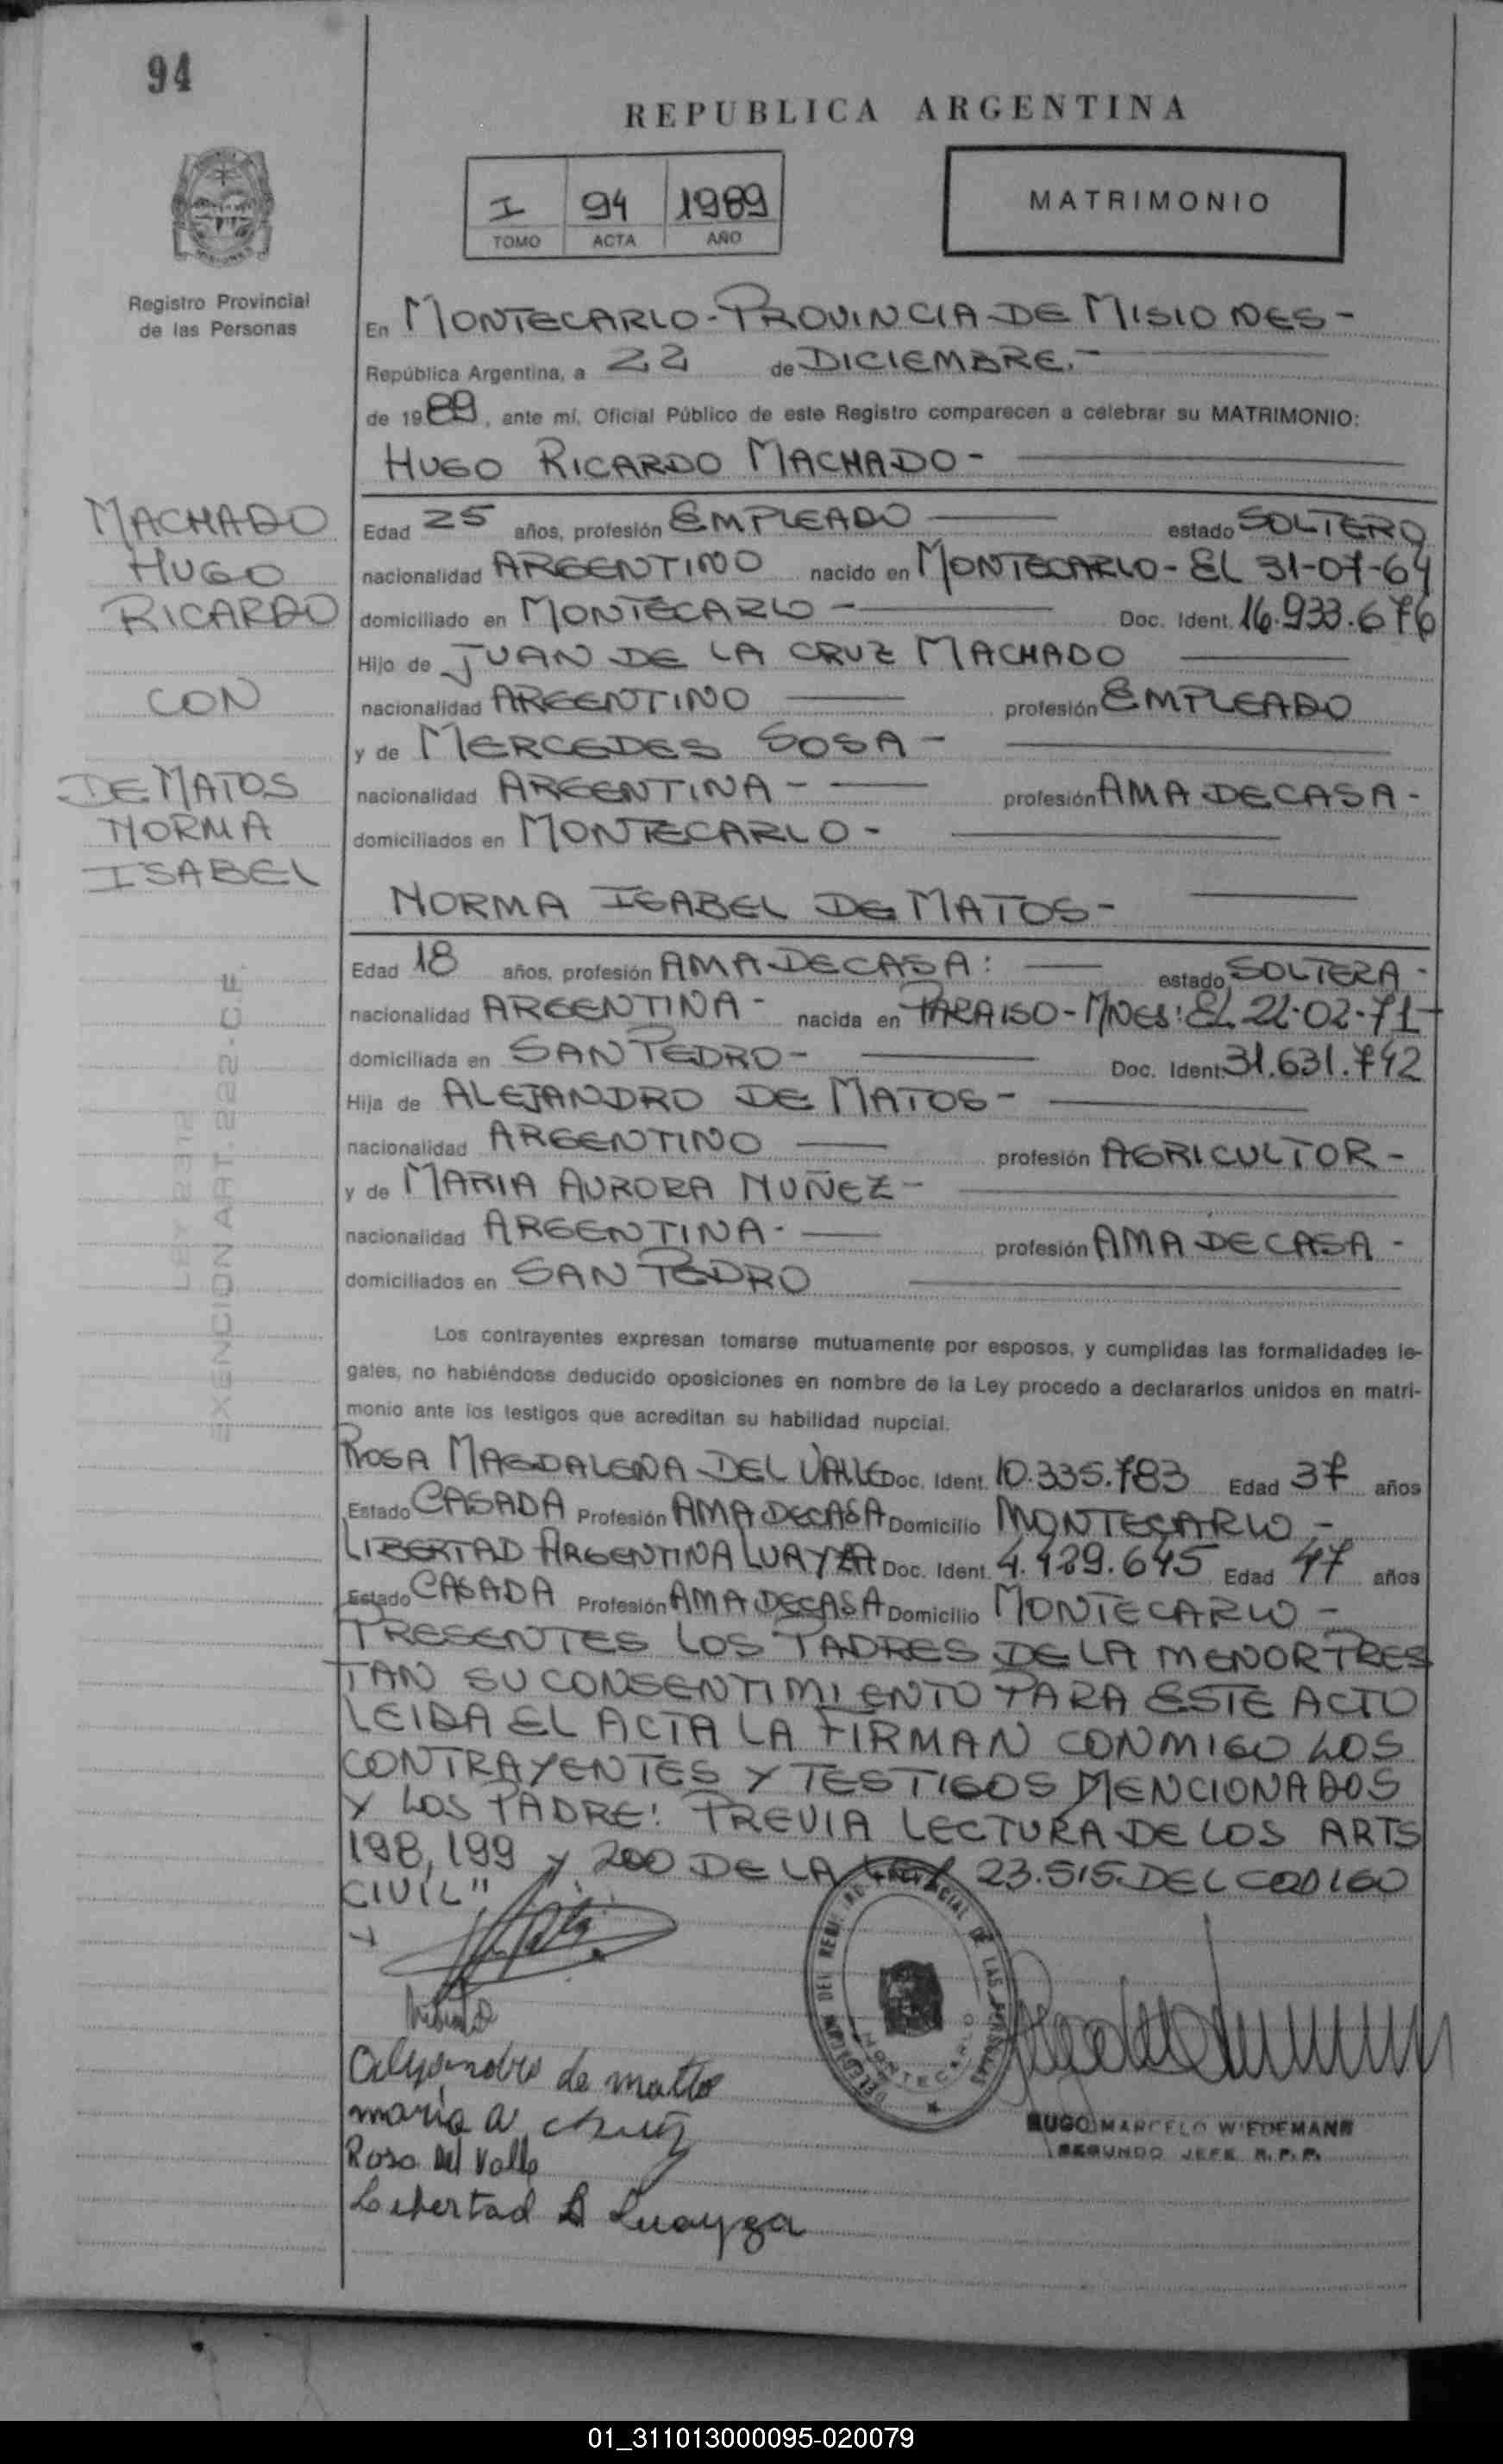 94
REPUBLICA ARGENTINA
I 94 1989
TOMO ACTA AÑO
MATRIMONIO
Registro Provincial
de las Personas
En MONTECARLO-PROVINCIA DE MISIONES-
República Argentina, a 22 de DICIEMBRE.-
de 1989, ante mí, Oficial Público de este Registro comparecen a celebrar su MATRIMONIO:
HUGO RICARDO MACHADO-
MACHADO
HUGO
RICARDO
CON
DE MATOS
NORMA
ISABEL
Edad 25 años, profesión EMPLEADO estado SOLTERO
nacionalidad ARGENTINO nacido en MONTECARLO-EL 31-07-64
domiciliado en MONTECARLO- Doc. Ident. 16.933.676
Hijo de JUAN DE LA CRUZ MACHADO
nacionalidad ARGENTINO profesión EMPLEADO
y de MERCEDES SOSA-
nacionalidad ARGENTINA- profesión AMA DE CASA-
domiciliados en MONTECARLO-
NORMA ISABEL DE MATOS-
Edad 18 años, profesión AMA DE CASA: estado SOLTERA-
nacionalidad ARGENTINA- nacida en PARAISO-MNES: EL 22-02-71-
domiciliada en SAN PEDRO- Doc. Ident. 31.631.742
Hija de ALEJANDRO DE MATOS-
nacionalidad ARGENTINO profesión AGRICULTOR-
y de MARIA AURORA NUÑEZ-
nacionalidad ARGENTINA- profesión AMA DE CASA-
domiciliados en SAN PEDRO
LEY 2312
EXENCION ART.222-C.F.
Los contrayentes expresan tomarse mutuamente por esposos, y cumplidas las formalidades le-
gales, no habiéndose deducido oposiciones en nombre de la Ley procedo a declararlos unidos en matri-
monio ante los testigos que acreditan su habilidad nupcial.
ROSA MAGDALENA DEL VALLE Doc. Ident. 10.335.783 Edad 37 años
Estado CASADA Profesión AMA DE CASA Domicilio MONTECARLO-
LIBERTAD ARGENTINA LUAYZA Doc. Ident. 4.429.645 Edad 47 años
Estado CASADA Profesión AMA DE CASA Domicilio MONTECARLO-
PRESENTES LOS PADRES DE LA MENOR PRES
TAN SU CONSENTIMIENTO PARA ESTE ACTO
LEIDA EL ACTA LA FIRMAN CONMIGO LOS
CONTRAYENTES Y TESTIGOS MENCIONADOS
Y LOS PADRE: PREVIA LECTURA DE LOS ARTS
198, 199 y 200 DE LA LEY 23.515. DEL CODIGO
CIVIL"
DELEGACION DEL REGISTRO PROVINCIAL DE LAS PERSONAS
MONTECARLO
Alejandro de matto
maria a nuñez
Rosa Del Valle
Libertad A Luayza
HUGO MARCELO WIEDEMANN
SEGUNDO JEFE R.P.P.
01_311013000095-020079